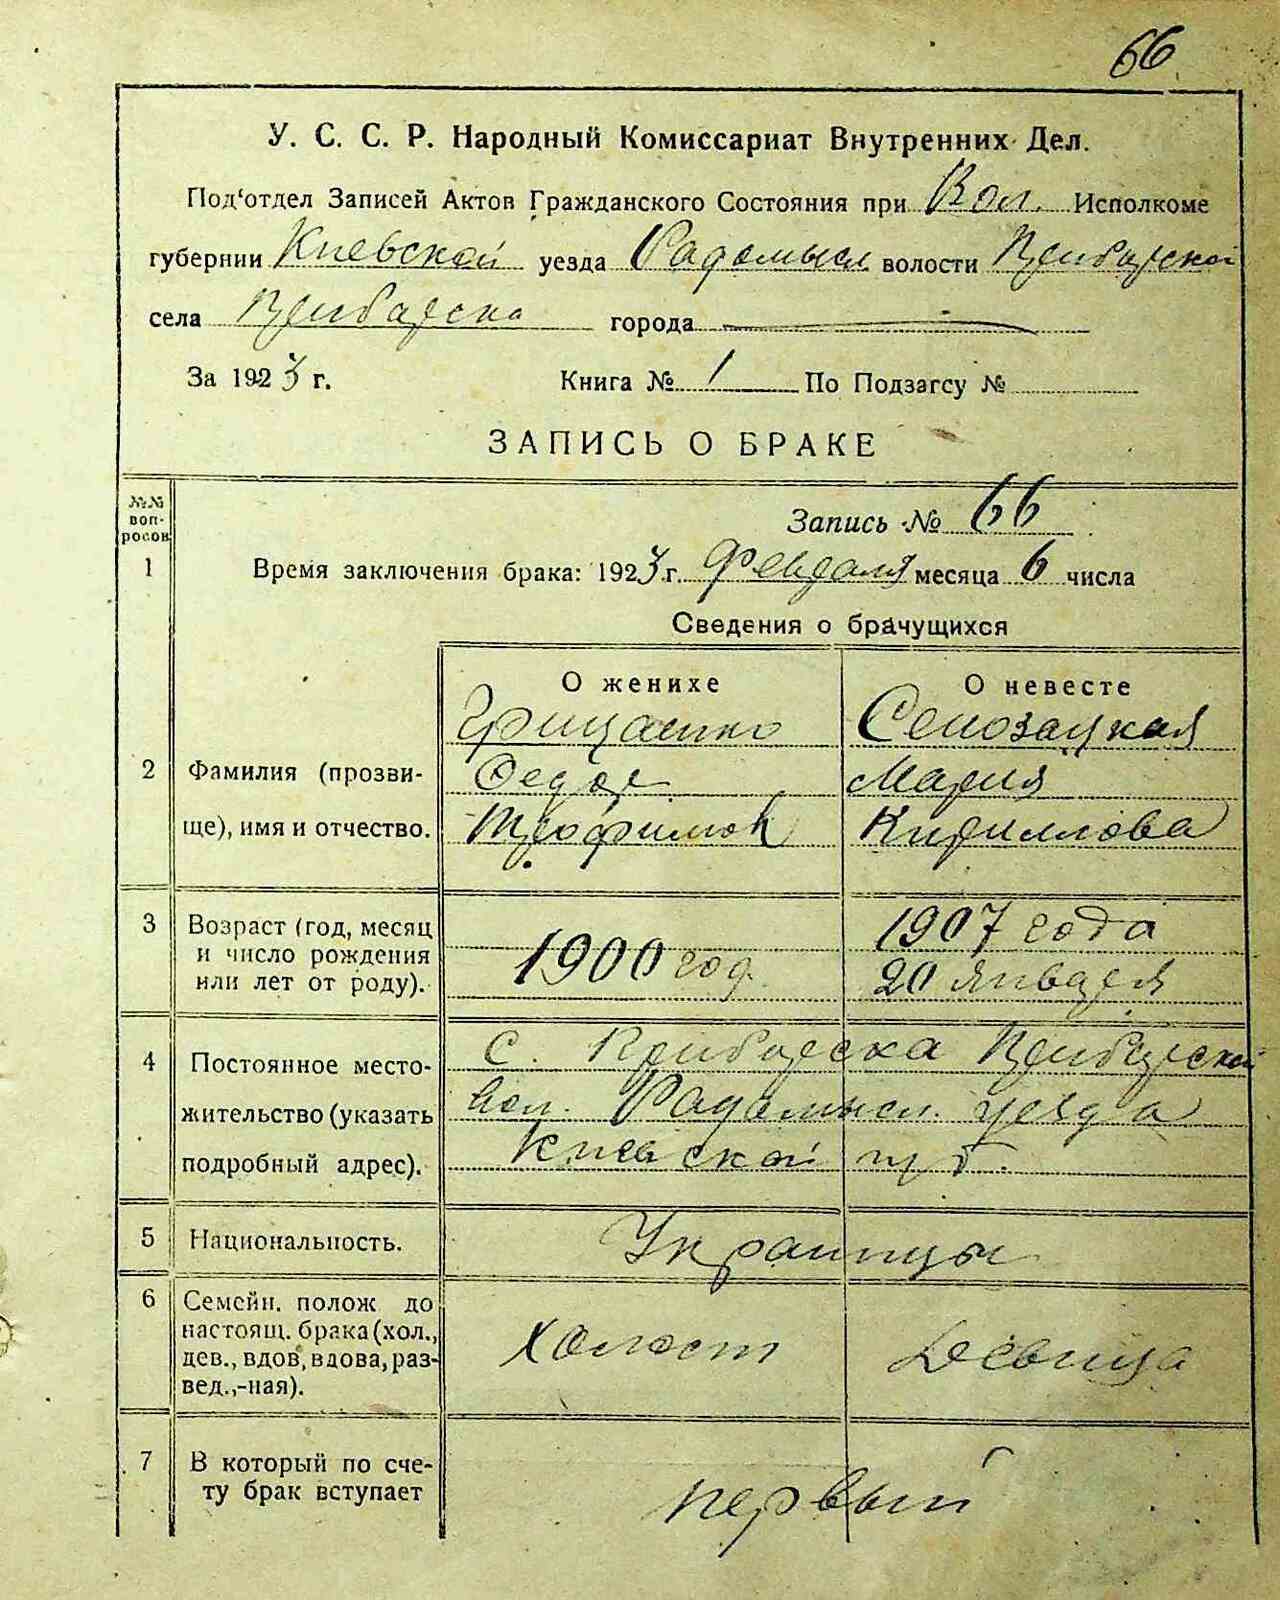 66
У. С. С. Р. Народный Комиссариат Внутренних Дел.
Под‘отдел Записей Актов Гражданского Состояния при Вол. Исполкоме
губернии Киевской уезда Радомысл волости Прибирской
села Прибирска города
За 1923 г. Книга № 1 По Подзагсу №
ЗАПИСЬ О БРАКЕ
№№ воп-росов
Запись № 66
1 Время заключения брака: 1923 г. Февраля месяца 6 числа
Сведения о брачущихся
О женихе О невесте
Грищенко
2 Фамилия (прозви- Федор Мария
ще), имя и отчество. Трофимов Кириллова
3 Возраст (год, месяц 1907 года
и число рождения 1900 год.
или лет от роду). 20 января
4 Постоянное место- с. Прибирска Прибирской
жительство (указать вол. Радомысл. уезда
подробный адрес). Киевской губ.
5 Национальность. Украинцы
6 Семейн. полож до
настоящ. брака (хол., холост девица
дев., вдов, вдова, раз-
вед.,-ная).
7 В который по сче-
ту брак вступает первый